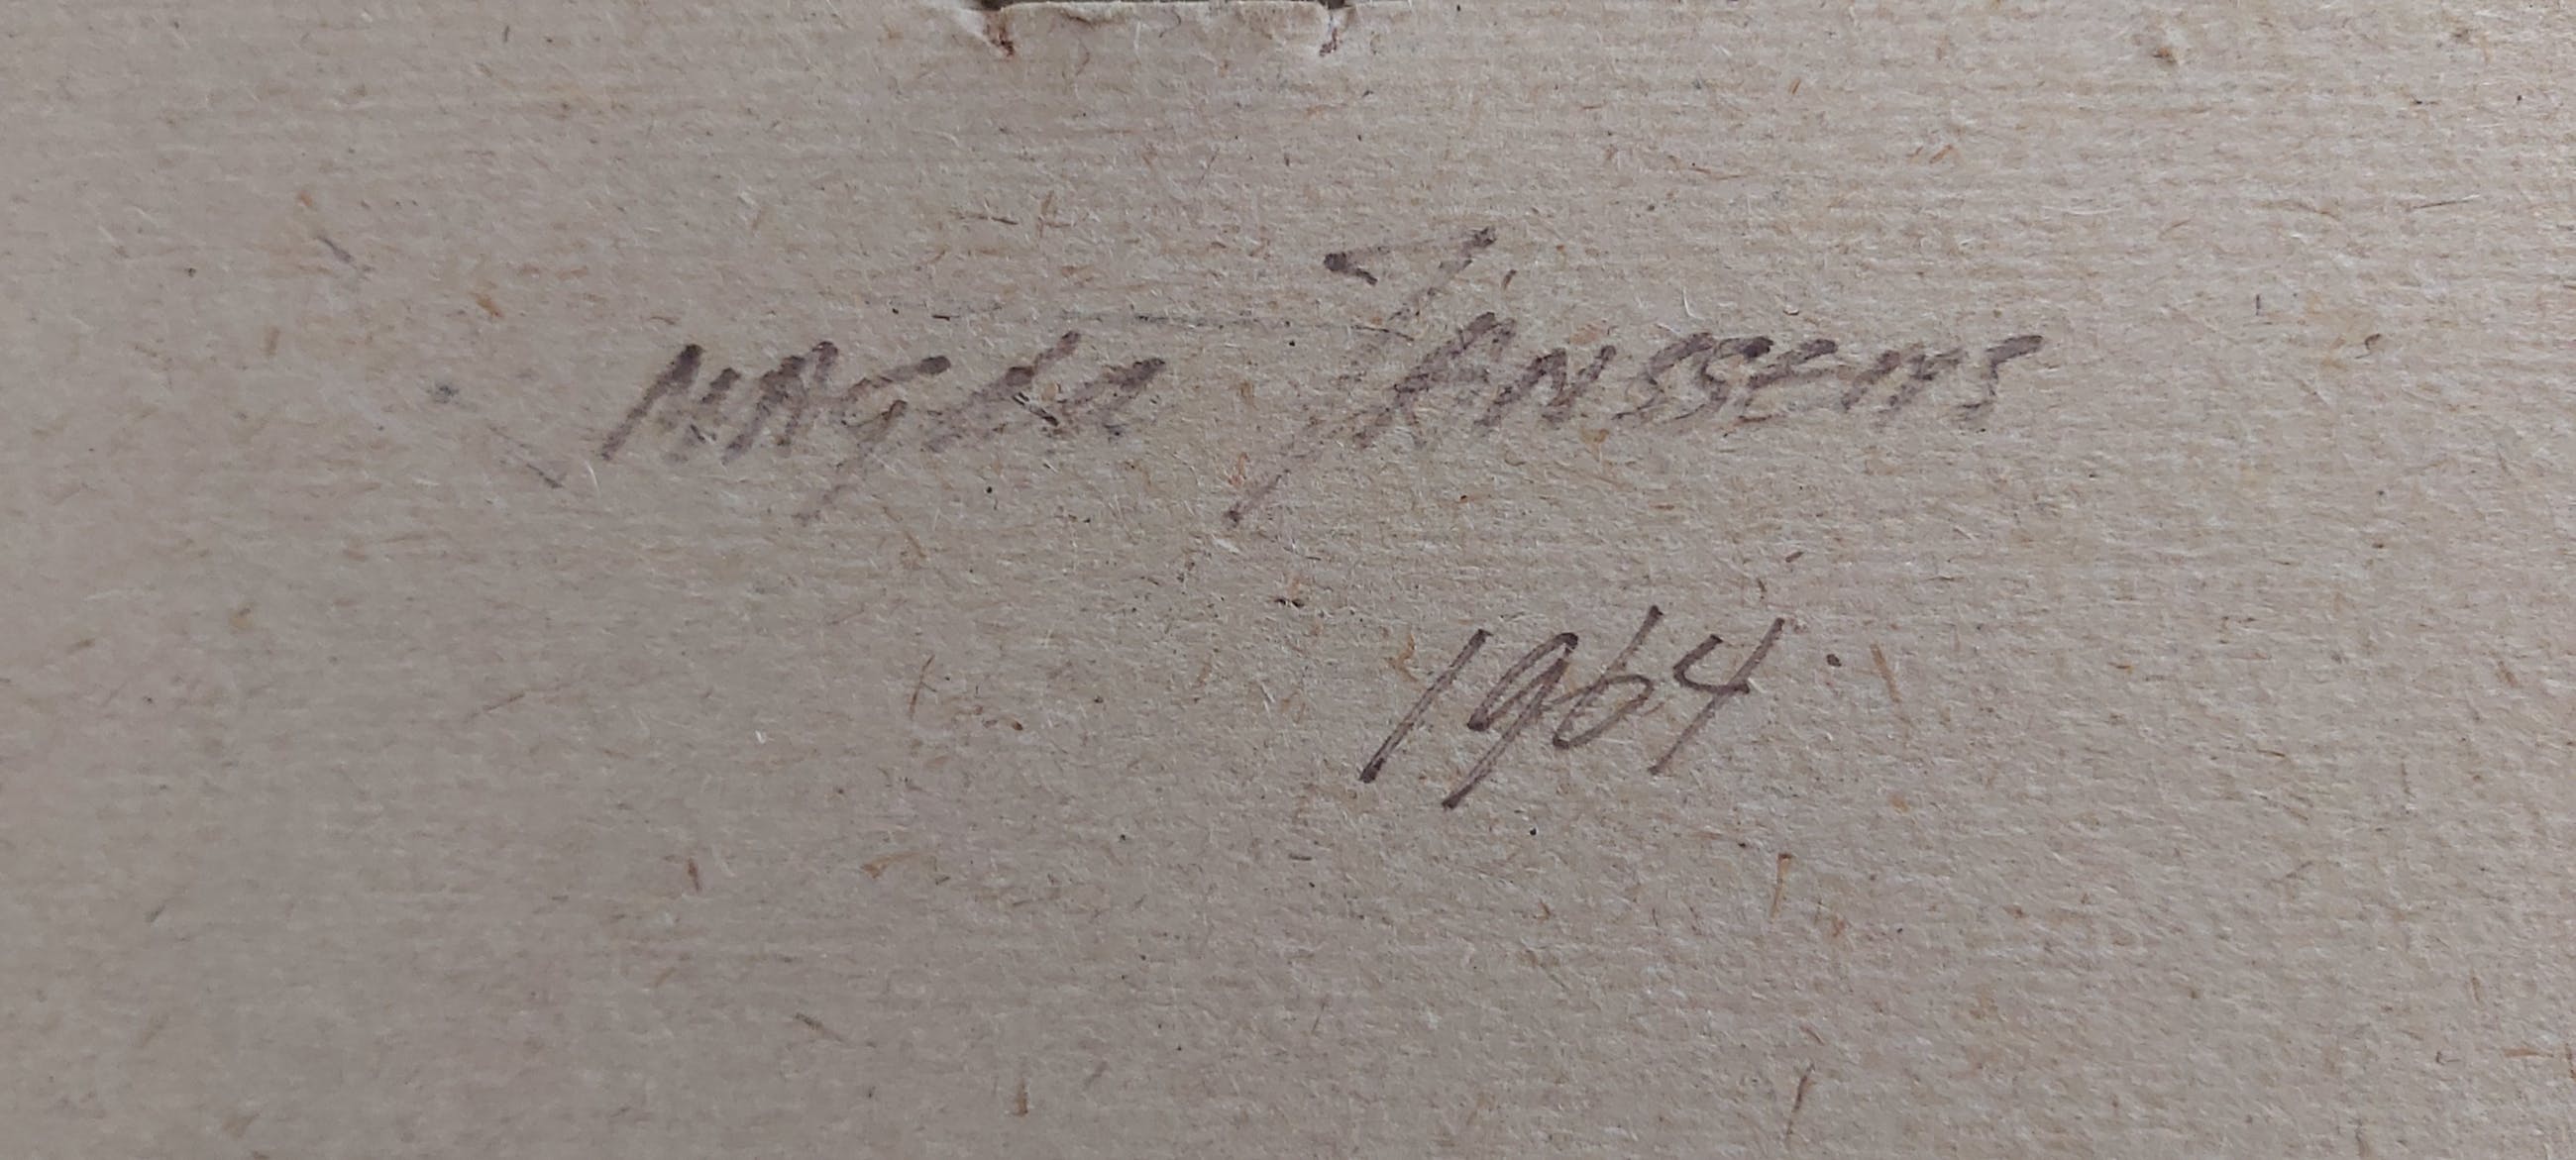 MAGda JANSSENS
1964